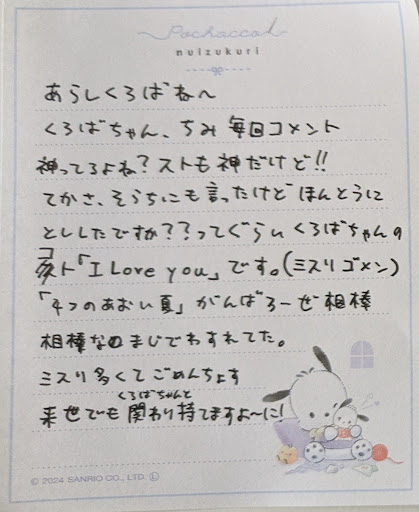 Pochacco
nuizukuri
あらしくろばね〜
くろばちゃん、ちみ毎回コメント
神ってるよね？ストも神だけど!!
てかさ、そらちにも言ったけどほんとうに
とししたですか？？ってぐらいくろばちゃんの
コト「I Love you」です。(ミスリゴメン)
「4つのあおい夏」がんばろーぜ相棒
相棒なのまじでわすれてた。
ミスリ多くてごめんちょす
くろばちゃんと
来世でも関わり持てますよ〜に!
© 2024 SANRIO CO., LTD. Ⓛ